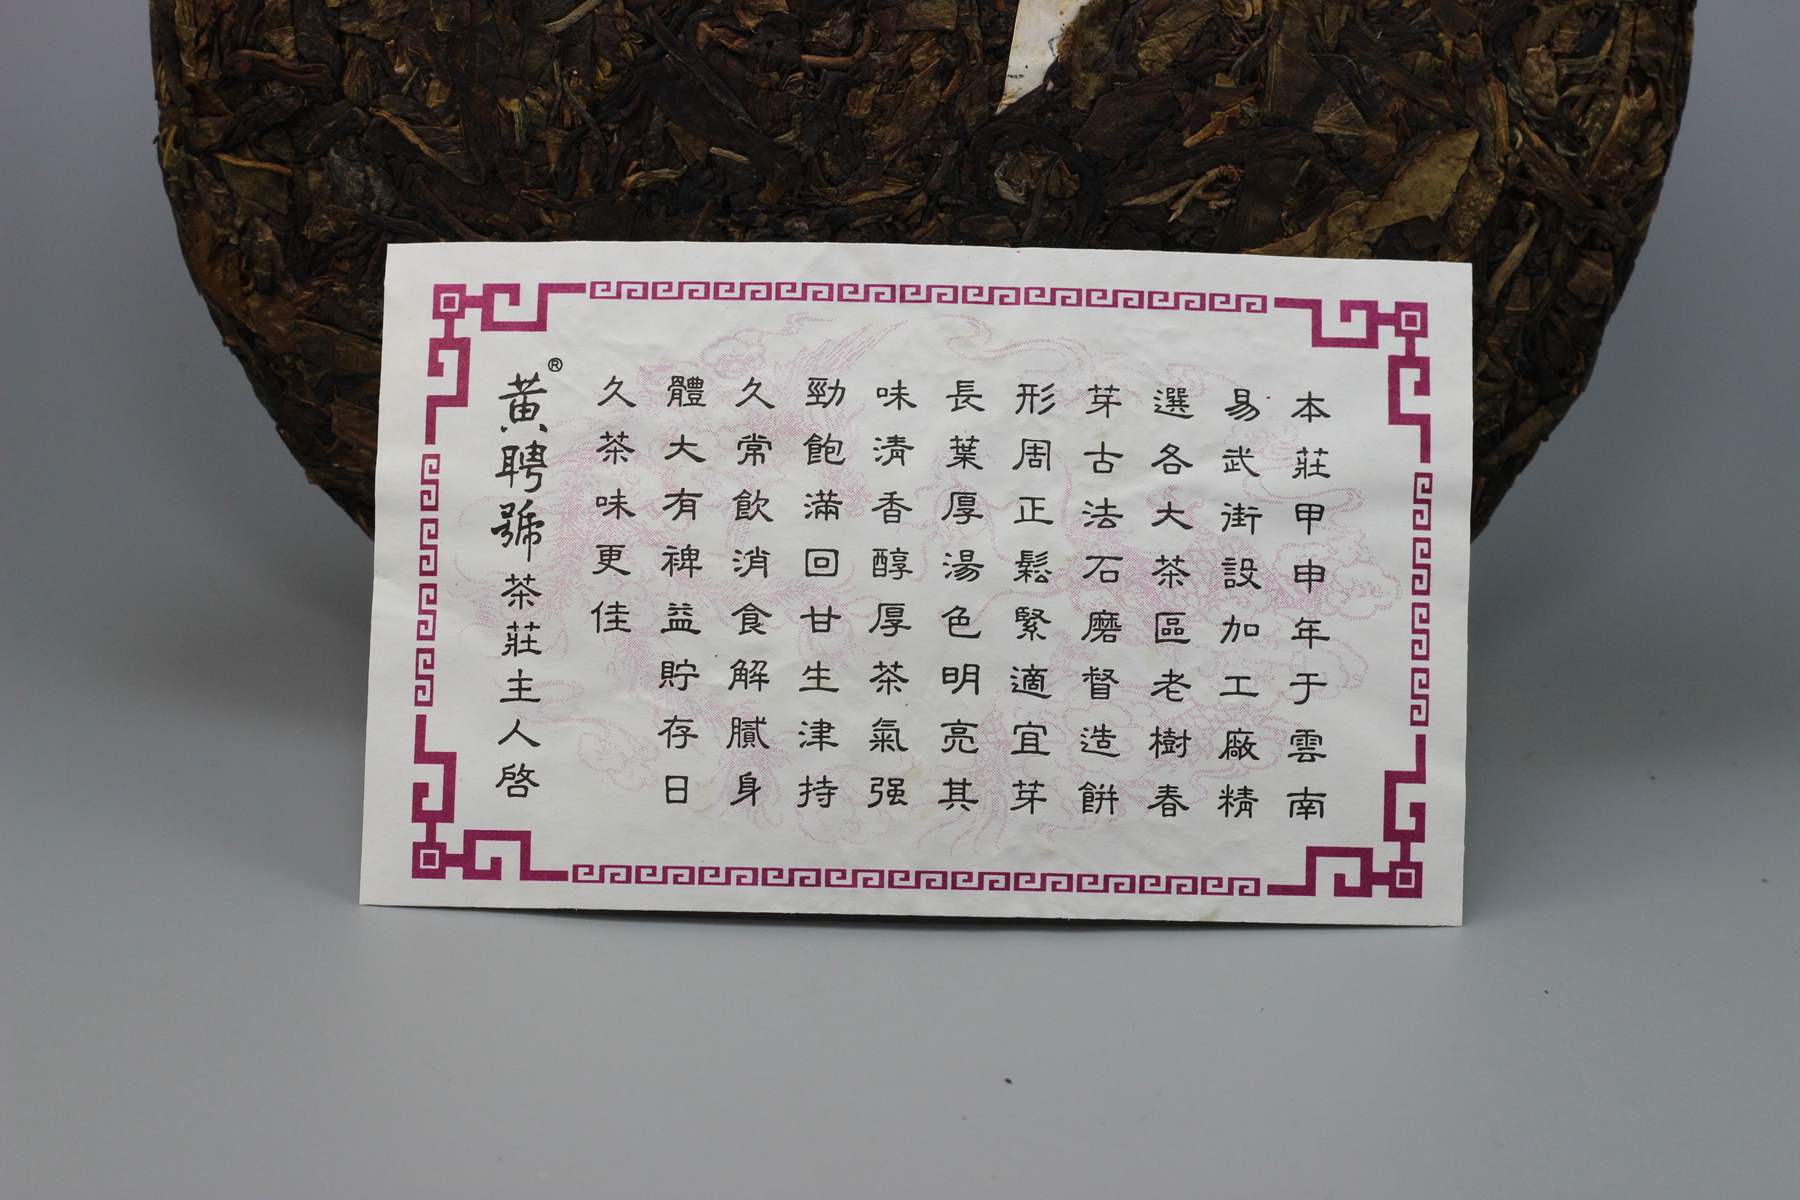 本莊甲申年于雲南
易武街設加工廠精
選各大茶區老樹春
芽古法石磨督造餅
形周正鬆緊適宜芽
長葉厚湯色明亮其
味清香醇厚茶氣强
勁飽滿回甘生津持
久常飲消食解膩身
體大有裨益貯存日
久茶味更佳
黃聘號®茶莊主人啓